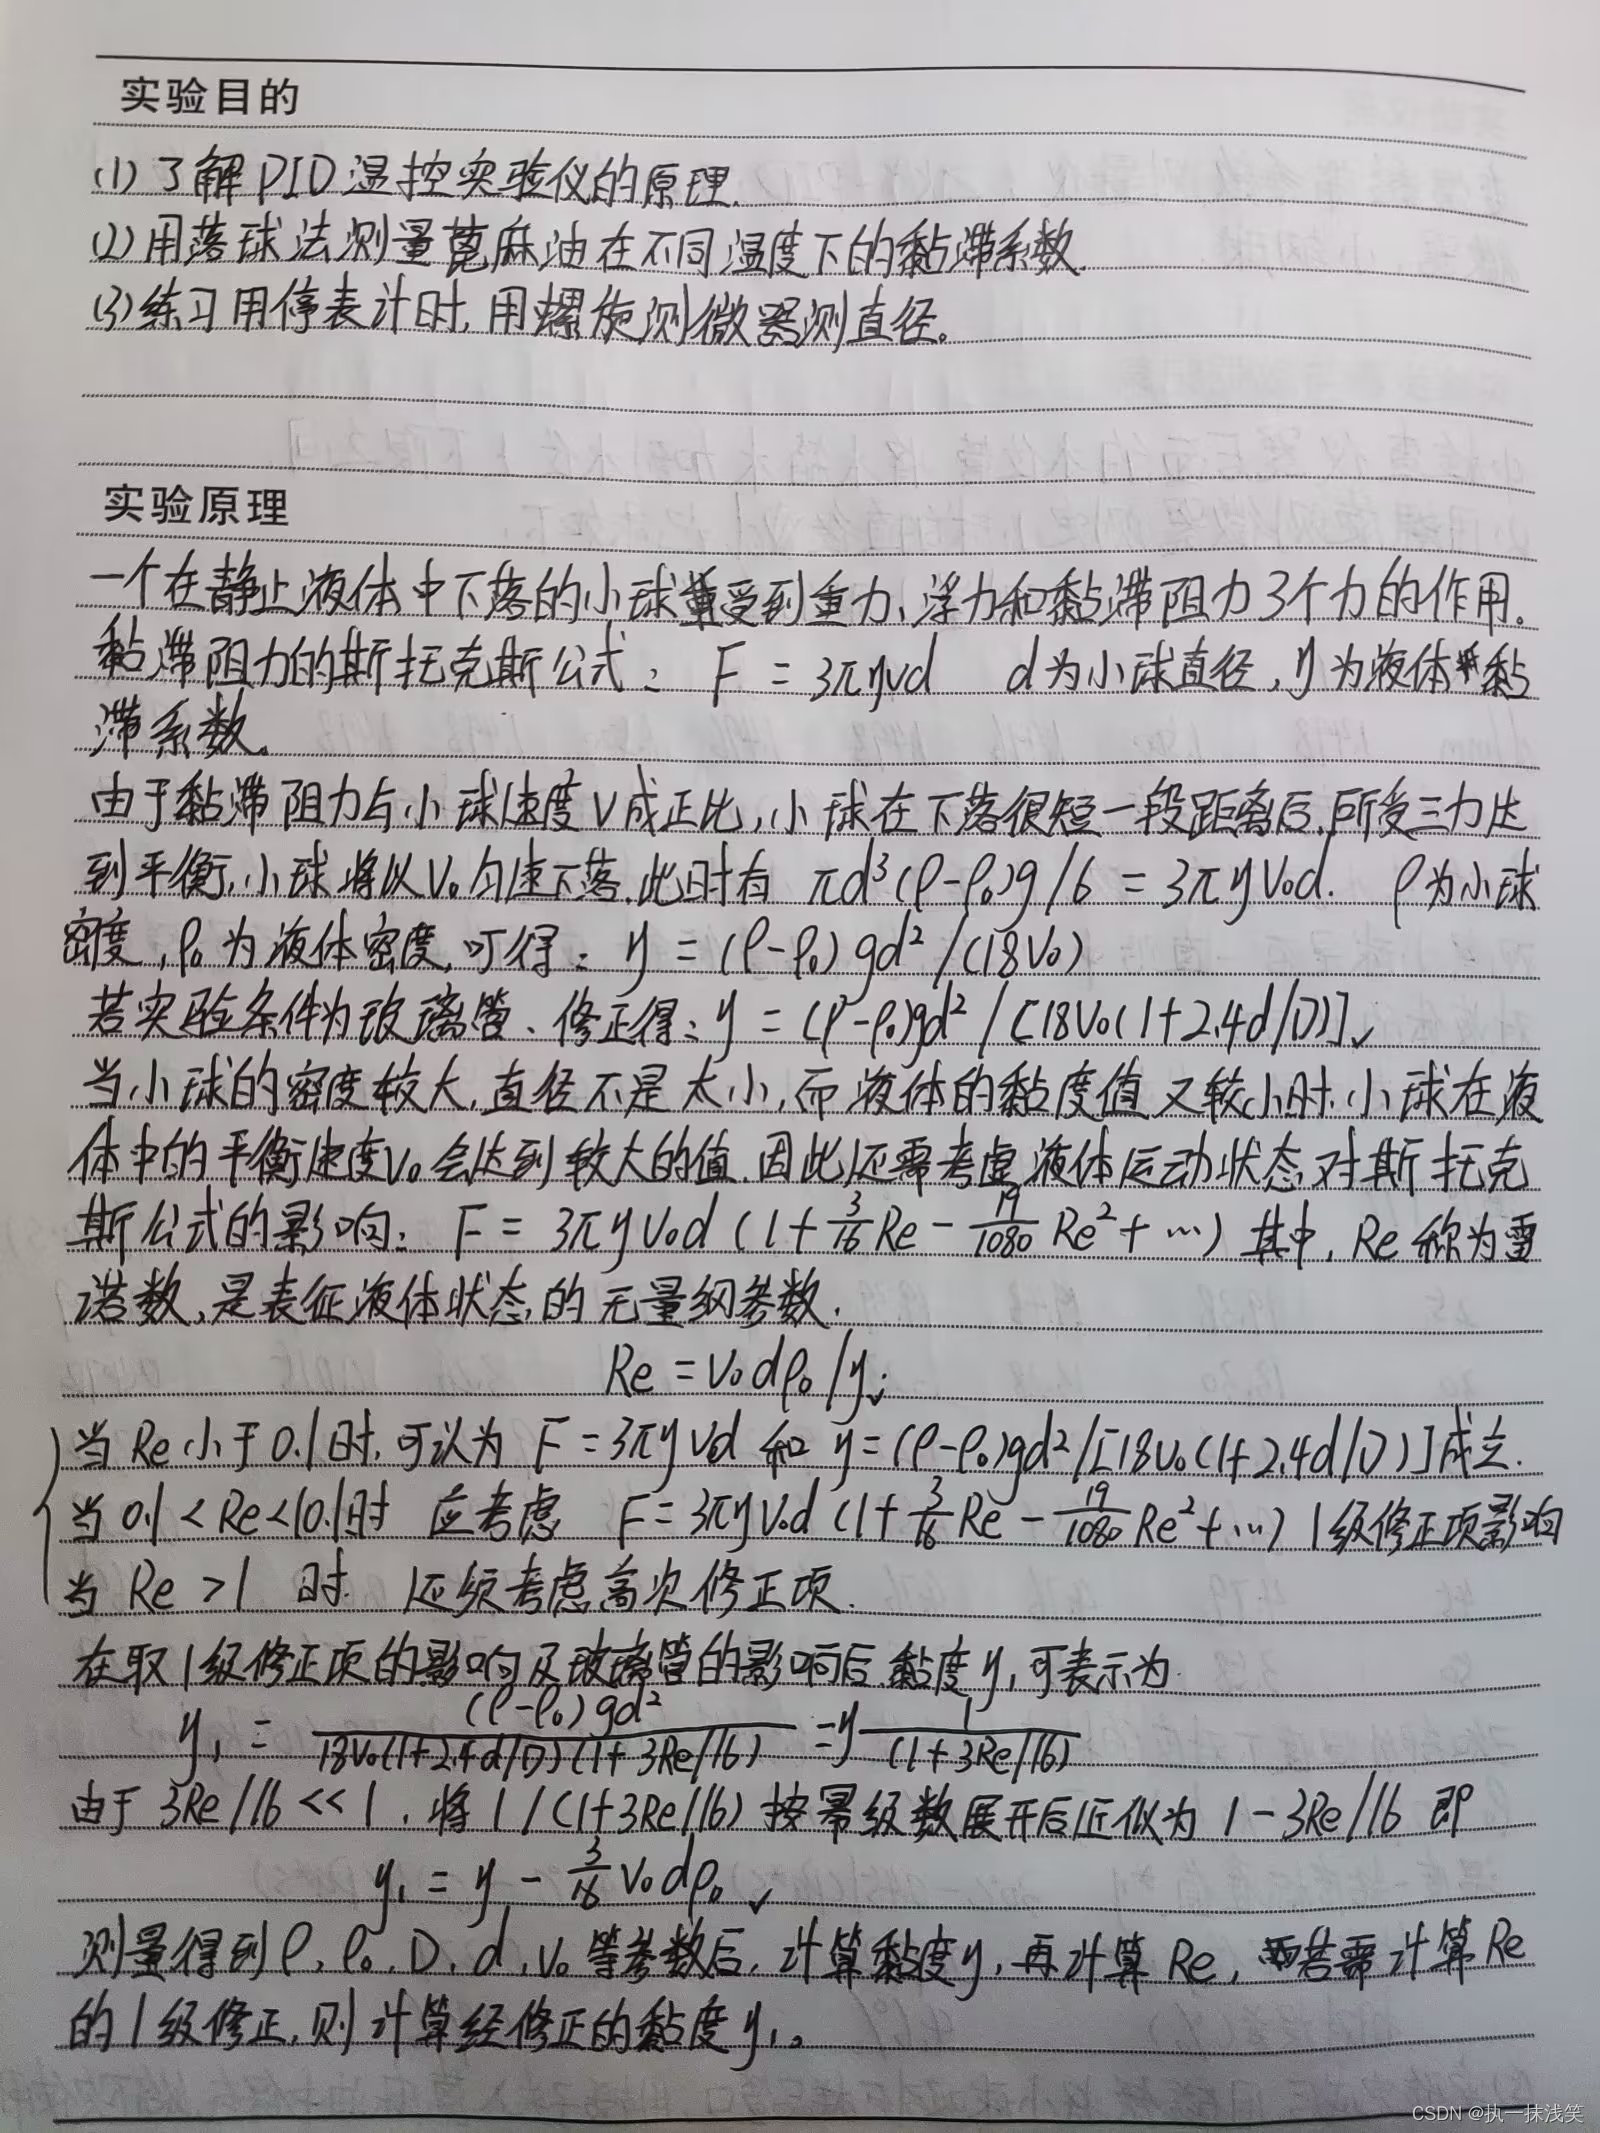 实验目的
(1) 了解PID温控实验仪的原理.
(2) 用落球法测量蓖麻油在不同温度下的黏滞系数.
(3) 练习用停表计时, 用螺旋测微器测直径。
实验原理
一个在静止液体中下落的小球受到重力、浮力和黏滞阻力3个力的作用。
黏滞阻力的斯托克斯公式: F = 3πηvd d为小球直径, η为液体黏
滞系数.
由于黏滞阻力与小球速度V成正比, 小球在下落很短一段距离后, 所受三力达
到平衡, 小球将以V₀匀速下落, 此时有 πd³(ρ-ρ₀)g/6 = 3πηV₀d. ρ为小球
密度, ρ₀为液体密度, 可得: η = (ρ-ρ₀)gd²/(18V₀)
若实验条件为玻璃管、修正得: η = (ρ-ρ₀)gd²/[18V₀(1+2.4d/D)]
当小球的密度较大, 直径不是太小, 而液体的黏度值又较小时, 小球在液
体中的平衡速度V₀会达到较大的值, 因此还需考虑液体运动状态对斯托克
斯公式的影响: F = 3πηV₀d (1+3/16Re - 19/1080Re²+…) 其中, Re称为雷
诺数, 是表征液体状态的无量纲参数.
Re = V₀dρ₀/η
当Re小于0.1时, 可认为 F=3πηV₀d 和 η=(ρ-ρ₀)gd²/[18V₀(1+2.4d/D)]成立.
当 0.1<Re<10.1时 应考虑 F=3πηV₀d (1+3/16Re - 19/1080Re²+…) 1级修正项影响
当 Re>1 时. 还须考虑高次修正项.
在取1级修正项的影响及玻璃管的影响后, 黏度η₁可表示为
η₁ = (ρ-ρ₀)gd² / 18V₀(1+2.4d/D)(1+3Re/16) = η 1/(1+3Re/16)
由于 3Re/16<<1, 将1/(1+3Re/16)按幂级数展开后近似为 1-3Re/16 即
η₁ = η - 3/16V₀dρ₀
测量得到ρ、ρ₀、D、d、V₀等参数后, 计算黏度η, 再计算Re, 若需计算Re
的1级修正, 则计算经修正的黏度η₁。
CSDN @执一抹浅笑